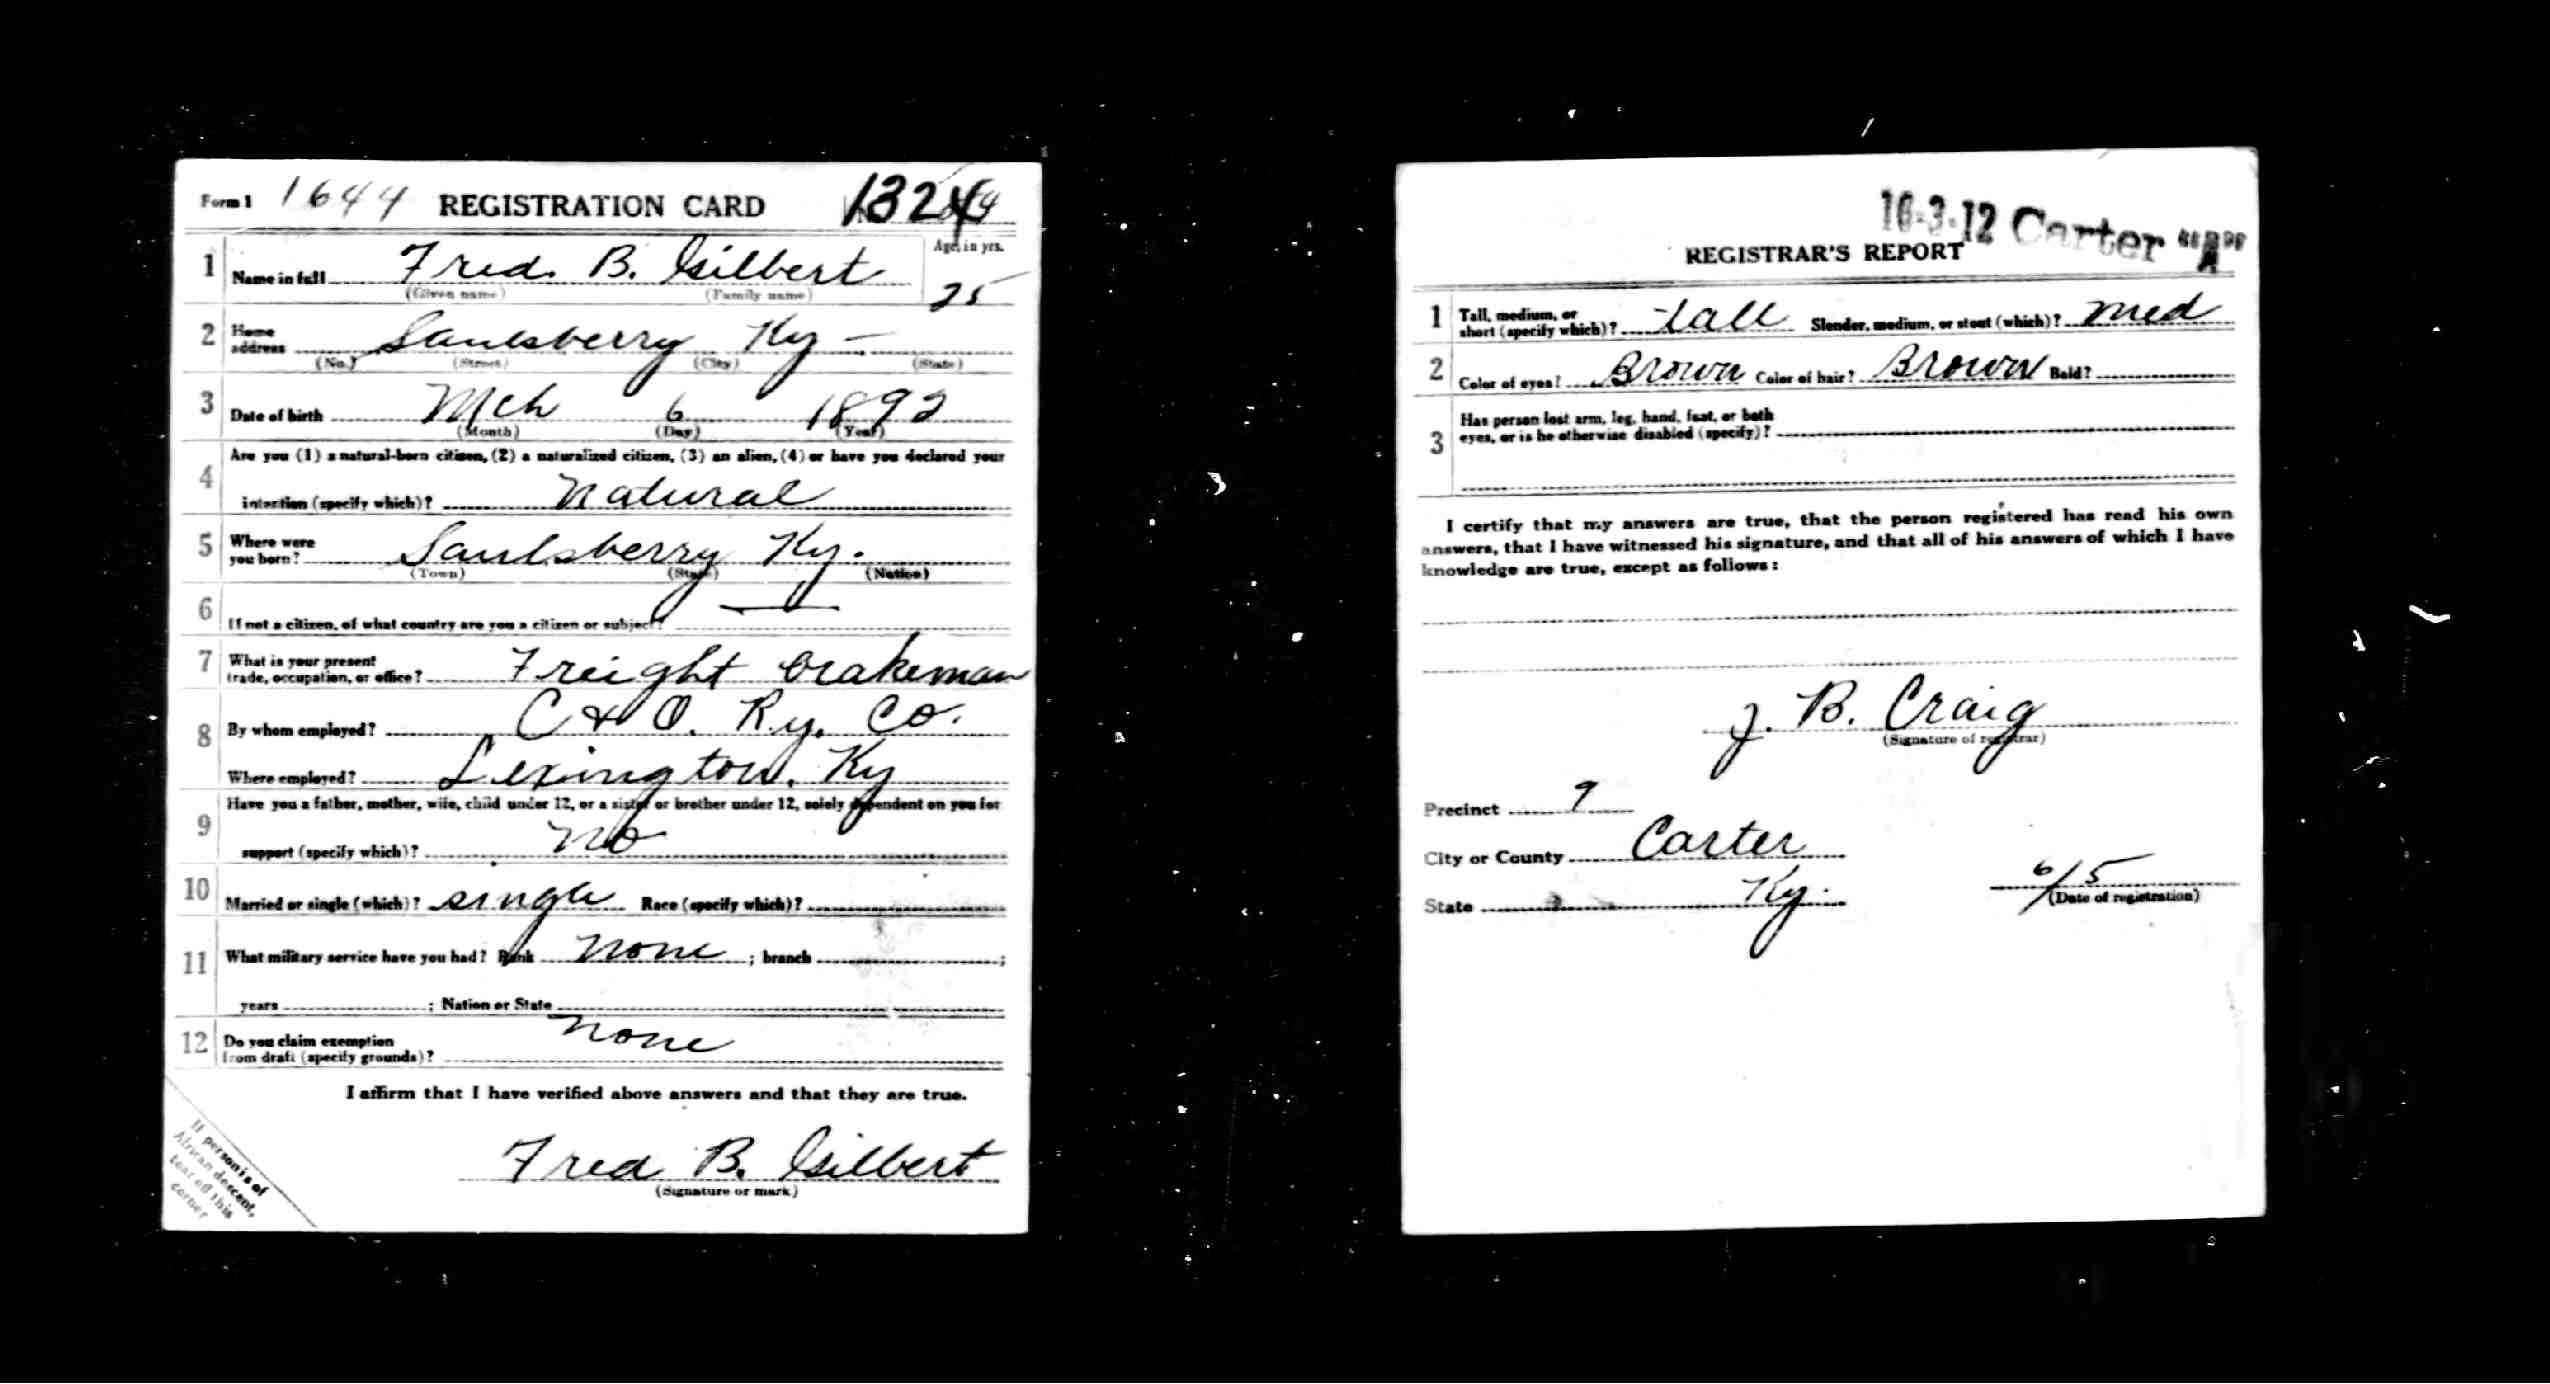 Form 1 1644 REGISTRATION CARD
1 Name in full Fred. B. Gilbert Age, in yrs.
(Given name) (Family name) 25
2 Home address Saulsberry Ky -
(No.) (Street) (City) (State)
3 Date of birth Mch 6 1892
(Month) (Day) (Year)
4 Are you (1) a natural-born citizen, (2) a naturalized citizen, (3) an alien, (4) or have you declared your
intention (specify which)? Natural
5 Where were you born? Saulsberry Ky.
(Town) (State) (Nation)
6 If not a citizen, of what country are you a citizen or subject? —
7 What is your present
trade, occupation, or office? Freight brakeman
8 By whom employed? C & O. Ry. Co.
Where employed? Lexington, Ky
9 Have you a father, mother, wife, child under 12, or a sister or brother under 12, solely dependent on you for
support (specify which)? No
10 Married or single (which)? single Race (specify which)?
11 What military service have you had? Rank None ; branch ;
years ; Nation or State
12 Do you claim exemption
from draft (specify grounds)? None
I affirm that I have verified above answers and that they are true.
Fred B. Gilbert
(Signature or mark)
If person is of
African descent,
tear off this
corner
16-3-12 Carter "A"
REGISTRAR'S REPORT
1 Tall, medium, or
short (specify which)? tall Slender, medium, or stout (which)? Med
2 Color of eyes? Brown Color of hair? Brown Bald?
3 Has person lost arm, leg, hand, foot, or both
eyes, or is he otherwise disabled (specify)?
I certify that my answers are true, that the person registered has read his own
answers, that I have witnessed his signature, and that all of his answers of which I have
knowledge are true, except as follows:
J. B. Craig
(Signature of registrar)
Precinct 9
City or County Carter
State Ky.
6/5
(Date of registration)